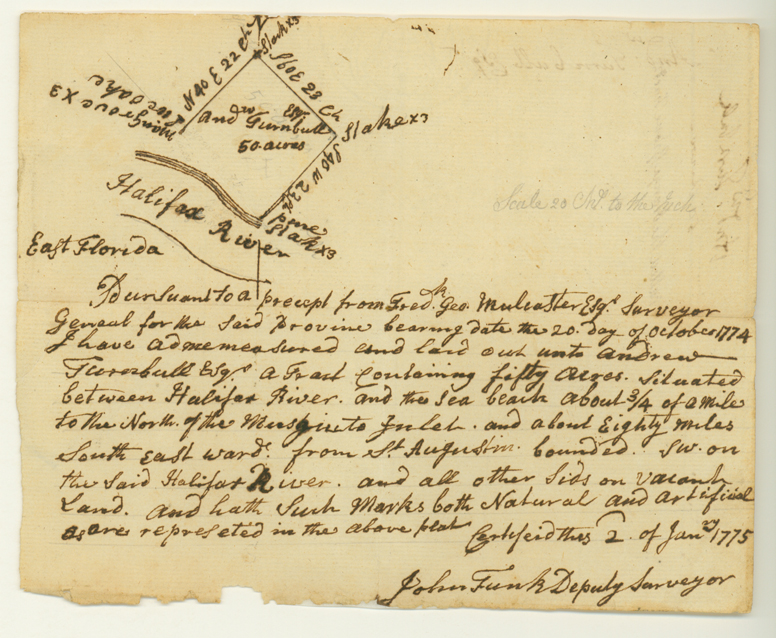 N40 E 22 Ch
Stake x3
S60E 23 Ch
Live oake
Mangrove x3
Andw Turnbull Esqr
50 acres
Stake x3
S40 W 23 Ch
pine Stake x3
Halifax River
East Florida
Scale 20 Chs to the Inch
Pursuant to a precept from Fredk Geo. Mulcaster Esqr Surveyor
Geneal for the said Provine bearing date the 20 day of October 1774
I have admeasured and laid out unto Andrew
Turnbull Esqr a Tract Containing fifty Acres. Situated
between Halifax River. and the Sea beach about 3/4 of a Mile
to the North. of the Musqueto Inlet. and about Eighty miles
South East ward. from St Augustin. bounded. SW. on
the Said Halifax River. and all other Sids on vacant
Land. and hath Such Marks both Natural and Artificial
as are represeted in the above plat Certifeid thes 2. of Jany 1775
John Funk Deputy Surveyor